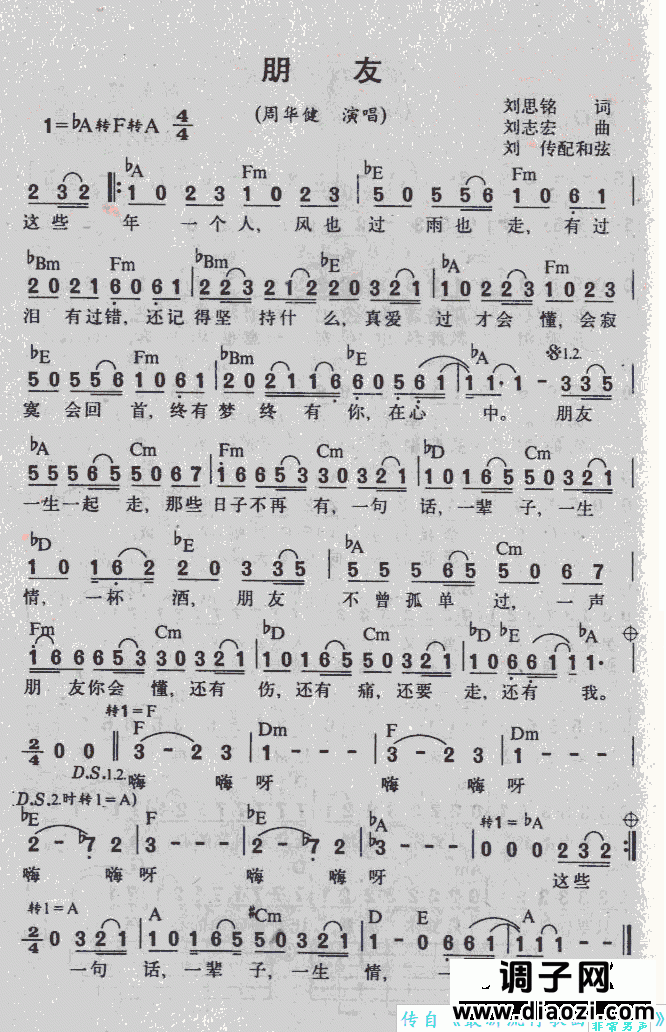 朋 友
1=♭A转F转A 4/4
(周华健 演唱)
刘思铭 词
刘志宏 曲
刘 传配和弦
♭A Fm ♭E Fm
2 3 2 ‖: 1 0 2 3 1 0 2 3 | 5 0 5 5 6 1 0 6 1 |
这些 年 一个人,风也过 雨也走,有过
♭Bm Fm ♭Bm ♭E ♭A Fm
2 0 2 1 6 0 6 1 | 2 2 3 2 1 2 2 0 3 2 1 | 1 0 2 2 3 1 0 2 3
泪 有过错,还记得坚 持什 么,真爱 过 才会 懂,会寂
♭E Fm ♭Bm ♭E ♭A 1.2.
5 0 5 5 6 1 0 6 1 | 2 0 2 1 1 6 6 0 5 6 1 | 1 1· 1 - 3 3 5
寞 会回 首,终有梦终 有 你,在心 中。 朋友
♭A Cm Fm Cm ♭D
5 5 5 6 5 5 0 6 7 | 1 6 6 5 3 3 0 3 2 1 | 1 0 1 6 5 5 0 3 2 1
一生一起 走,那些日子不再 有,一句 话,一辈 子,一生
♭D ♭E ♭A Cm
1 0 1 6 2 2 0 3 | 2·3 2 3 5 | 5 5 5 6 5 5 0 6 7
情,一杯 酒,朋友 不曾孤单 过,一声
Fm Cm ♭D Cm ♭D ♭E ♭A
1 6 6 6 5 3 3 0 3 2 1 | 1 0 1 6 5 5 0 3 2 1 | 1 0 6 6 1 1 1·
朋 友你会 懂,还有 伤,还有 痛,还要 走,还有 我。
转1=F
F Dm F Dm
2/4 0 0 ‖ 3 - 2 3 | 1 - - - | 3 - 2 3 | 1 - - -
D.S.1.2. 嗨 嗨呀 嗨 嗨呀
D.S.2.时转1=A)
♭E F ♭E ♭A 转1=♭A
2 - ♭7 2 | 3 - - - | 2 - ♭7 2 | ♭3 - - - | 0 0 0 2 3 2 :‖
嗨 嗨呀 嗨 嗨呀 这些
转1=A A ♯Cm D E A
2/4 0 3 2 1 | 1 0 1 6 5 5 0 3 2 1 | 1 - 0 6 6 1 | 1 1 1 - -
一句 话,一辈 子,一生 情,一
调子网
www.diaozi.com
传自《最新流行歌曲